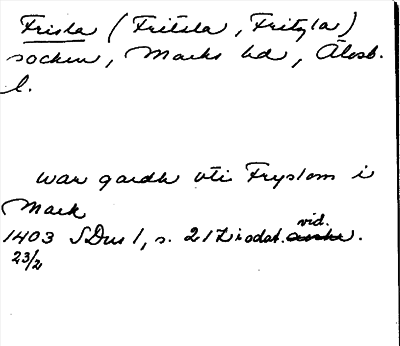 Frisla (Fritsla, Frityla)
socken, Marks hd, Älvsb.
l.
war gardh vti Fryslom i
Mark
1403 SDns 1, s. 217 i odat. vid.
23/2